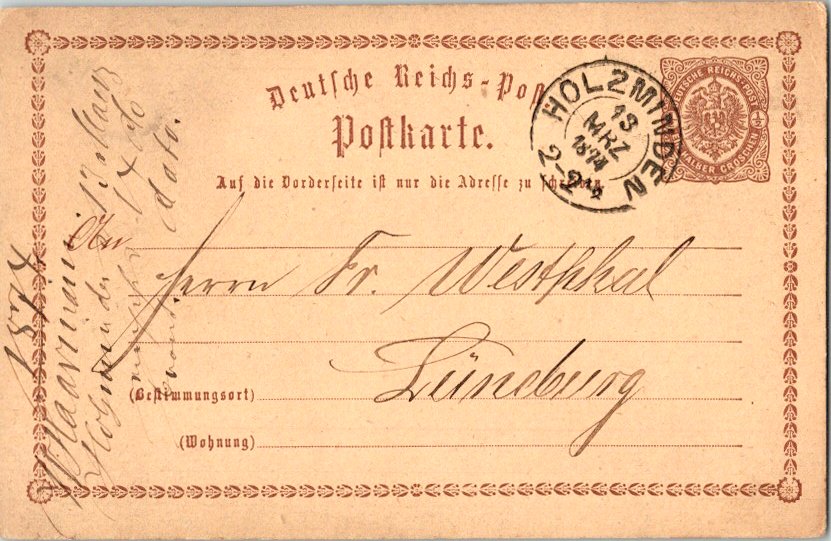 Deutsche Reichs-Post
Postkarte.
Auf die Vorderseite ist nur die Adresse zu schreiben
HOLZMINDEN
13
MRZ
1874
2-2½
DEUTSCHE REICHS-POST
EIN HALBER GROSCHEN
½
An
Herrn Fr. Westphal
Lüneburg
(Bestimmungsort)
(Wohnung)
1874
Holzminden 13 März
dato.